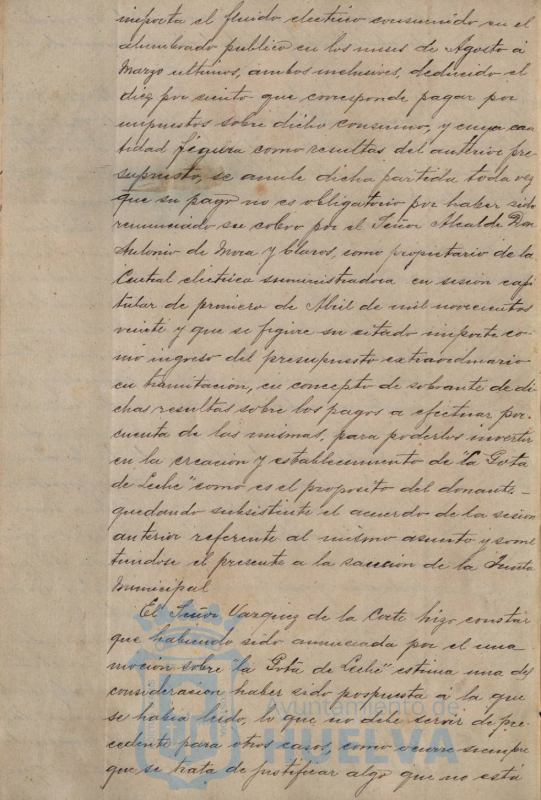 importa el fluido electrico consumido en el
alumbrado publico en los meses de Agosto á
Marzo ultimos, ambos inclusives, deducido el
diez por ciento que corresponde pagar por
impuestos sobre dicho consumo, y cuya can
tidad figura como resultas del anterior pre-
supuesto, se anule dicha partida toda vez
que su pago no es obligatorio por haber sido
renunciado su cobro por el Señor Alcalde Don
Antonio de Mora y Claros, como propietario de la
Central electrica suministradora en sesion capi
tular de primero de Abril de mil novecientos
veinte y que se figire su citado importe co-
mo ingreso del presupuesto extraordinario
en tramitacion, en concepto de sobrante de di
chas resultas sobre los pagos a efectuar por
cuenta de las mismas, para poderlos invertir
en la creacion y establecimiento de "la Gota
de Leche" como es el proposito del donante. -
quedando subsistente el acuerdo de la sesion
anterior referente al mismo asunto y some
tiendose el presente a la sancion de la Junta
Municipal
El Señor Vazquez de la Corte hizo constar
que habiendo sido anunciada por el una
mocion sobre "la Gota de Leche" estima una des
consideracion haber sido pospuesta á la que
se habia leido, lo que no debe servir de pre-
cedente para otros casos, como ocurre siempre
que se trata de justificar algo que no está
Ayuntamiento de
HUELVA